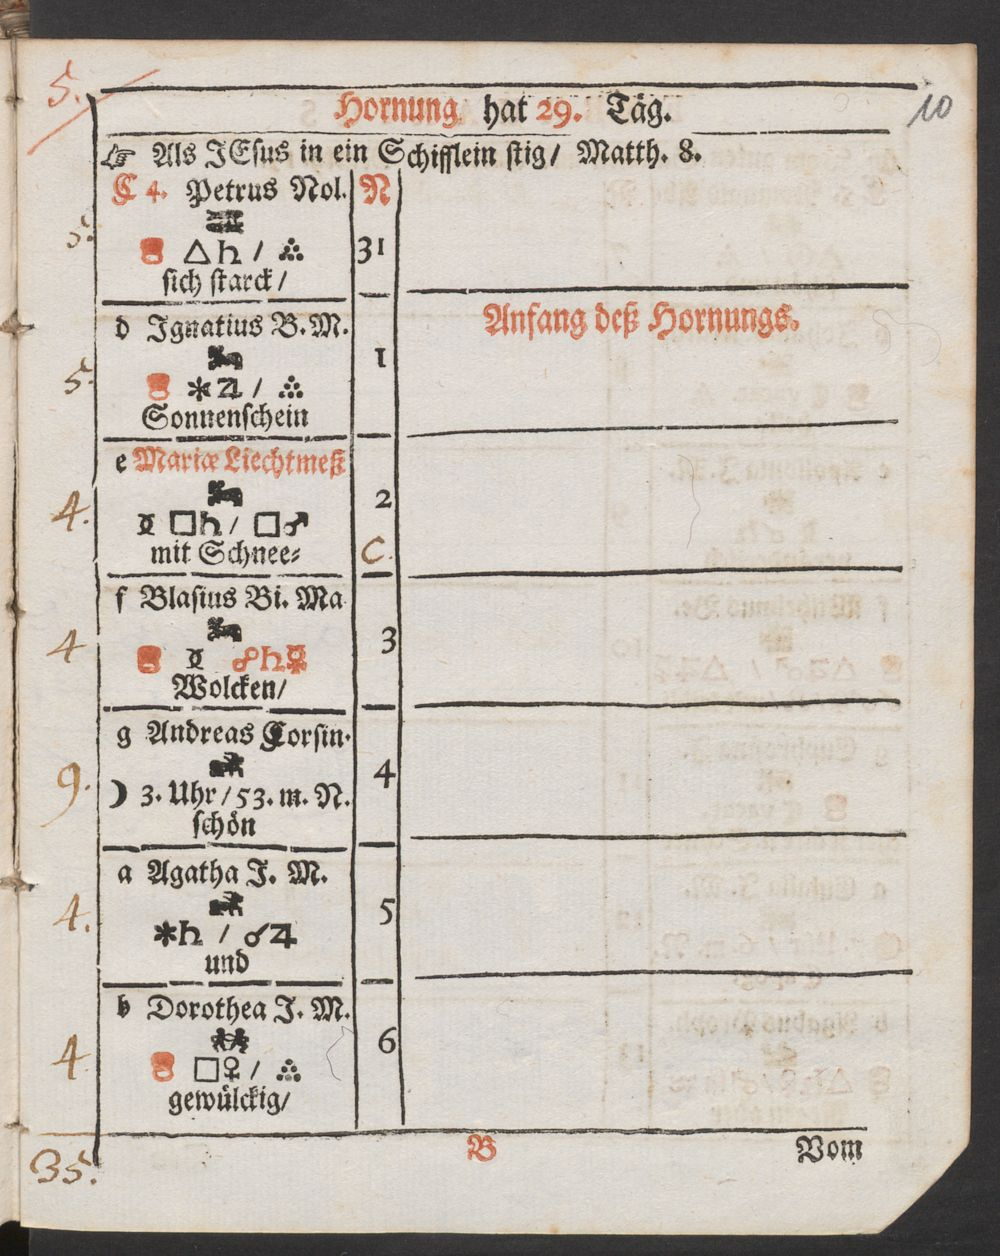 5.
10
Hornung hat 29. Täg.
☞ Als JEsus in ein Schifflein stig/ Matth. 8.
C 4. Petrus Nol. N
5.
△ ♄ / ஃ 31
sich starck/
d Ignatius B. M.
Anfang deß Hornungs.
1
5.
✶ ♃ / ஃ
Sonnenschein
e Mariæ Liechtmeß
4. 2
□ ♄ / □ ♂
mit Schnee⸗ C.
f Blasius Bi. Ma
4 3
☍ ♄ ☿
Wolcken/
g Andreas Corsin.
9. 4
☽ 3. Uhr / 53. m. N.
schön
a Agatha J. M.
4. 5
✶ ♄ / ☌ ♃
und
b Dorothea J. M.
4. 6
□ ♀ / ஃ
gewülckig/
35.
B Vom